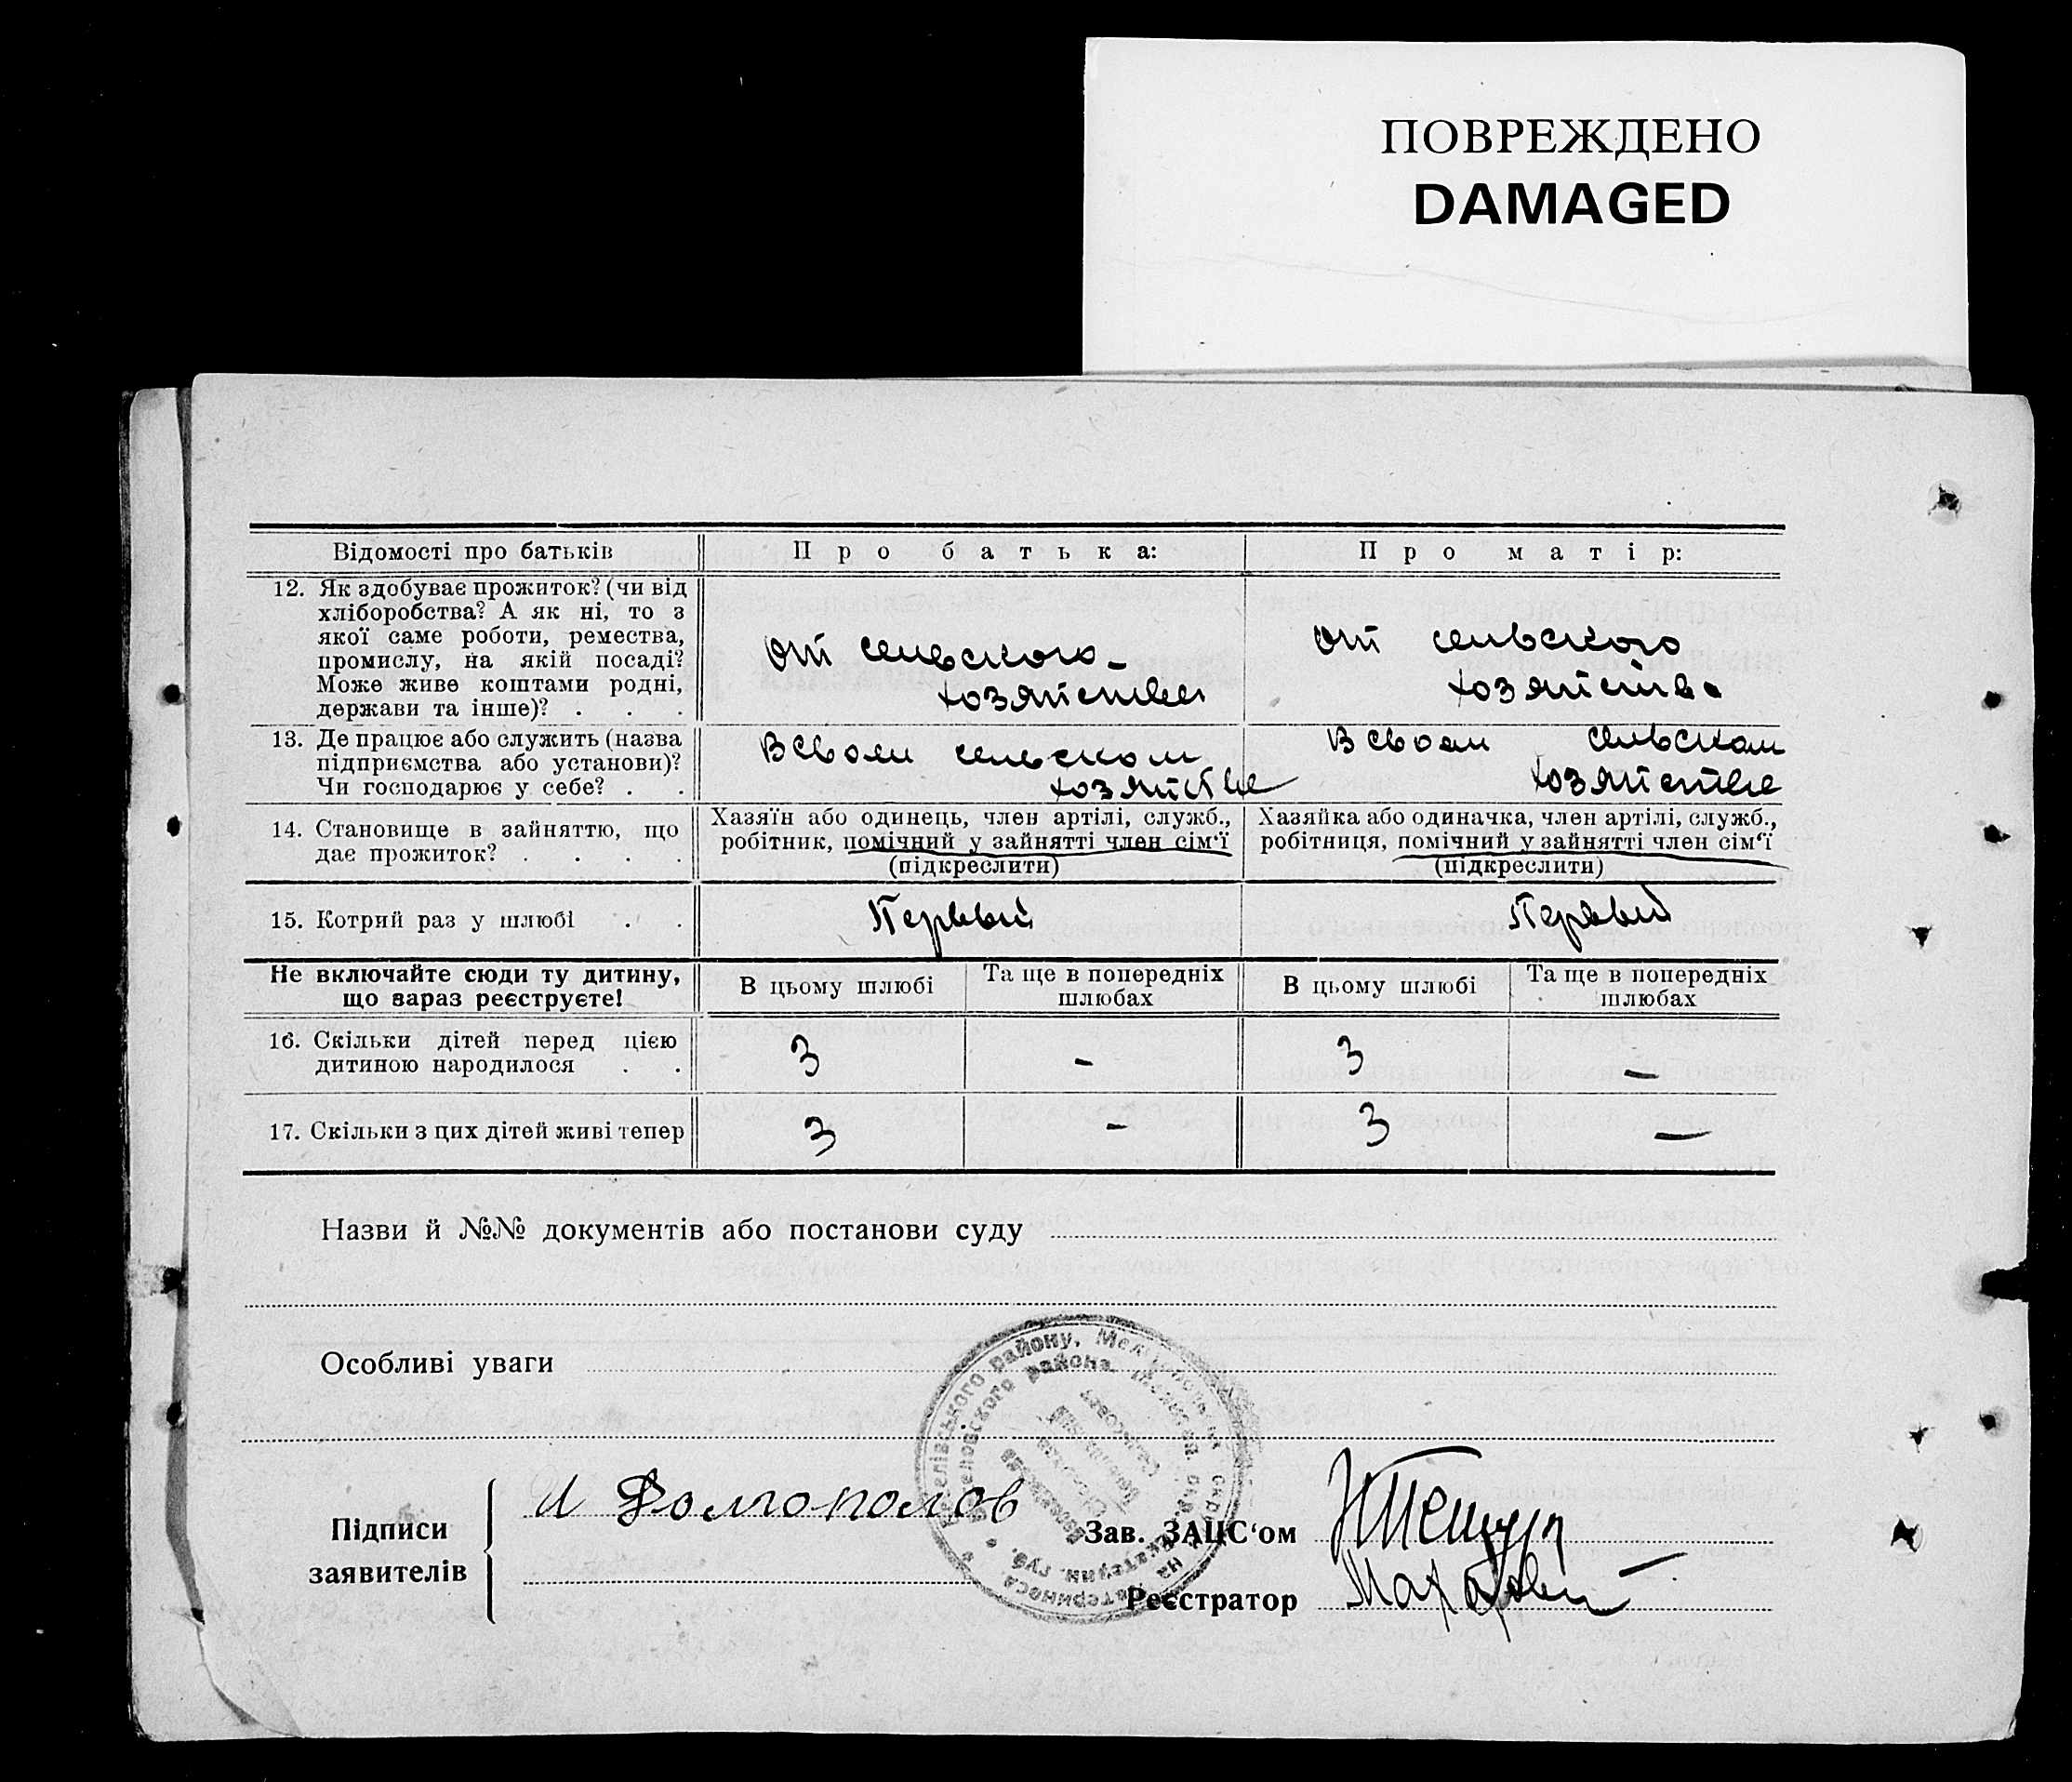 ПОВРЕЖДЕНО
DAMAGED
Відомості про батьків
Про батька:
Про матір:
12. Як здобуває прожиток? (чи від
хліборобства? А як ні, то з
якої саме роботи, ремества,
промислу, на якій посаді?
Може живе коштами родні,
держави та інше)? . . .
От сельского-
хозяйства
От сельского
хозяйства
13. Де працює або служить (назва
підприємства або установи)?
Чи господарює у себе? . .
В своем сельском
хозяйстве
В своем сельском
хозяйстве
14. Становище в зайняттю, що
дає прожиток? . . . .
Хазяїн або одинець, член артілі, служб.,
робітник, помічний у зайнятті член сім‘ї
(підкреслити)
Хазяйка або одиначка, член артілі, служб.,
робітниця, помічний у зайнятті член сім‘ї
(підкреслити)
15. Котрий раз у шлюбі . .
Первый
Первый
Не включайте сюди ту дитину,
що вараз реєструєте!
В цьому шлюбі
Та ще в попередніх
шлюбах
В цьому шлюбі
Та ще в попередніх
шлюбах
16. Скільки дітей перед цією
дитиною народилося . .
3 - 3 —
17. Скільки з цих дітей живі тепер
3 - 3 —
Назви й №№ документів або постанови суду
Особливі уваги
району, района
Підписи
заявителів
И Долгополов
Зав. ЗАЦС‘ом
Реєстратор